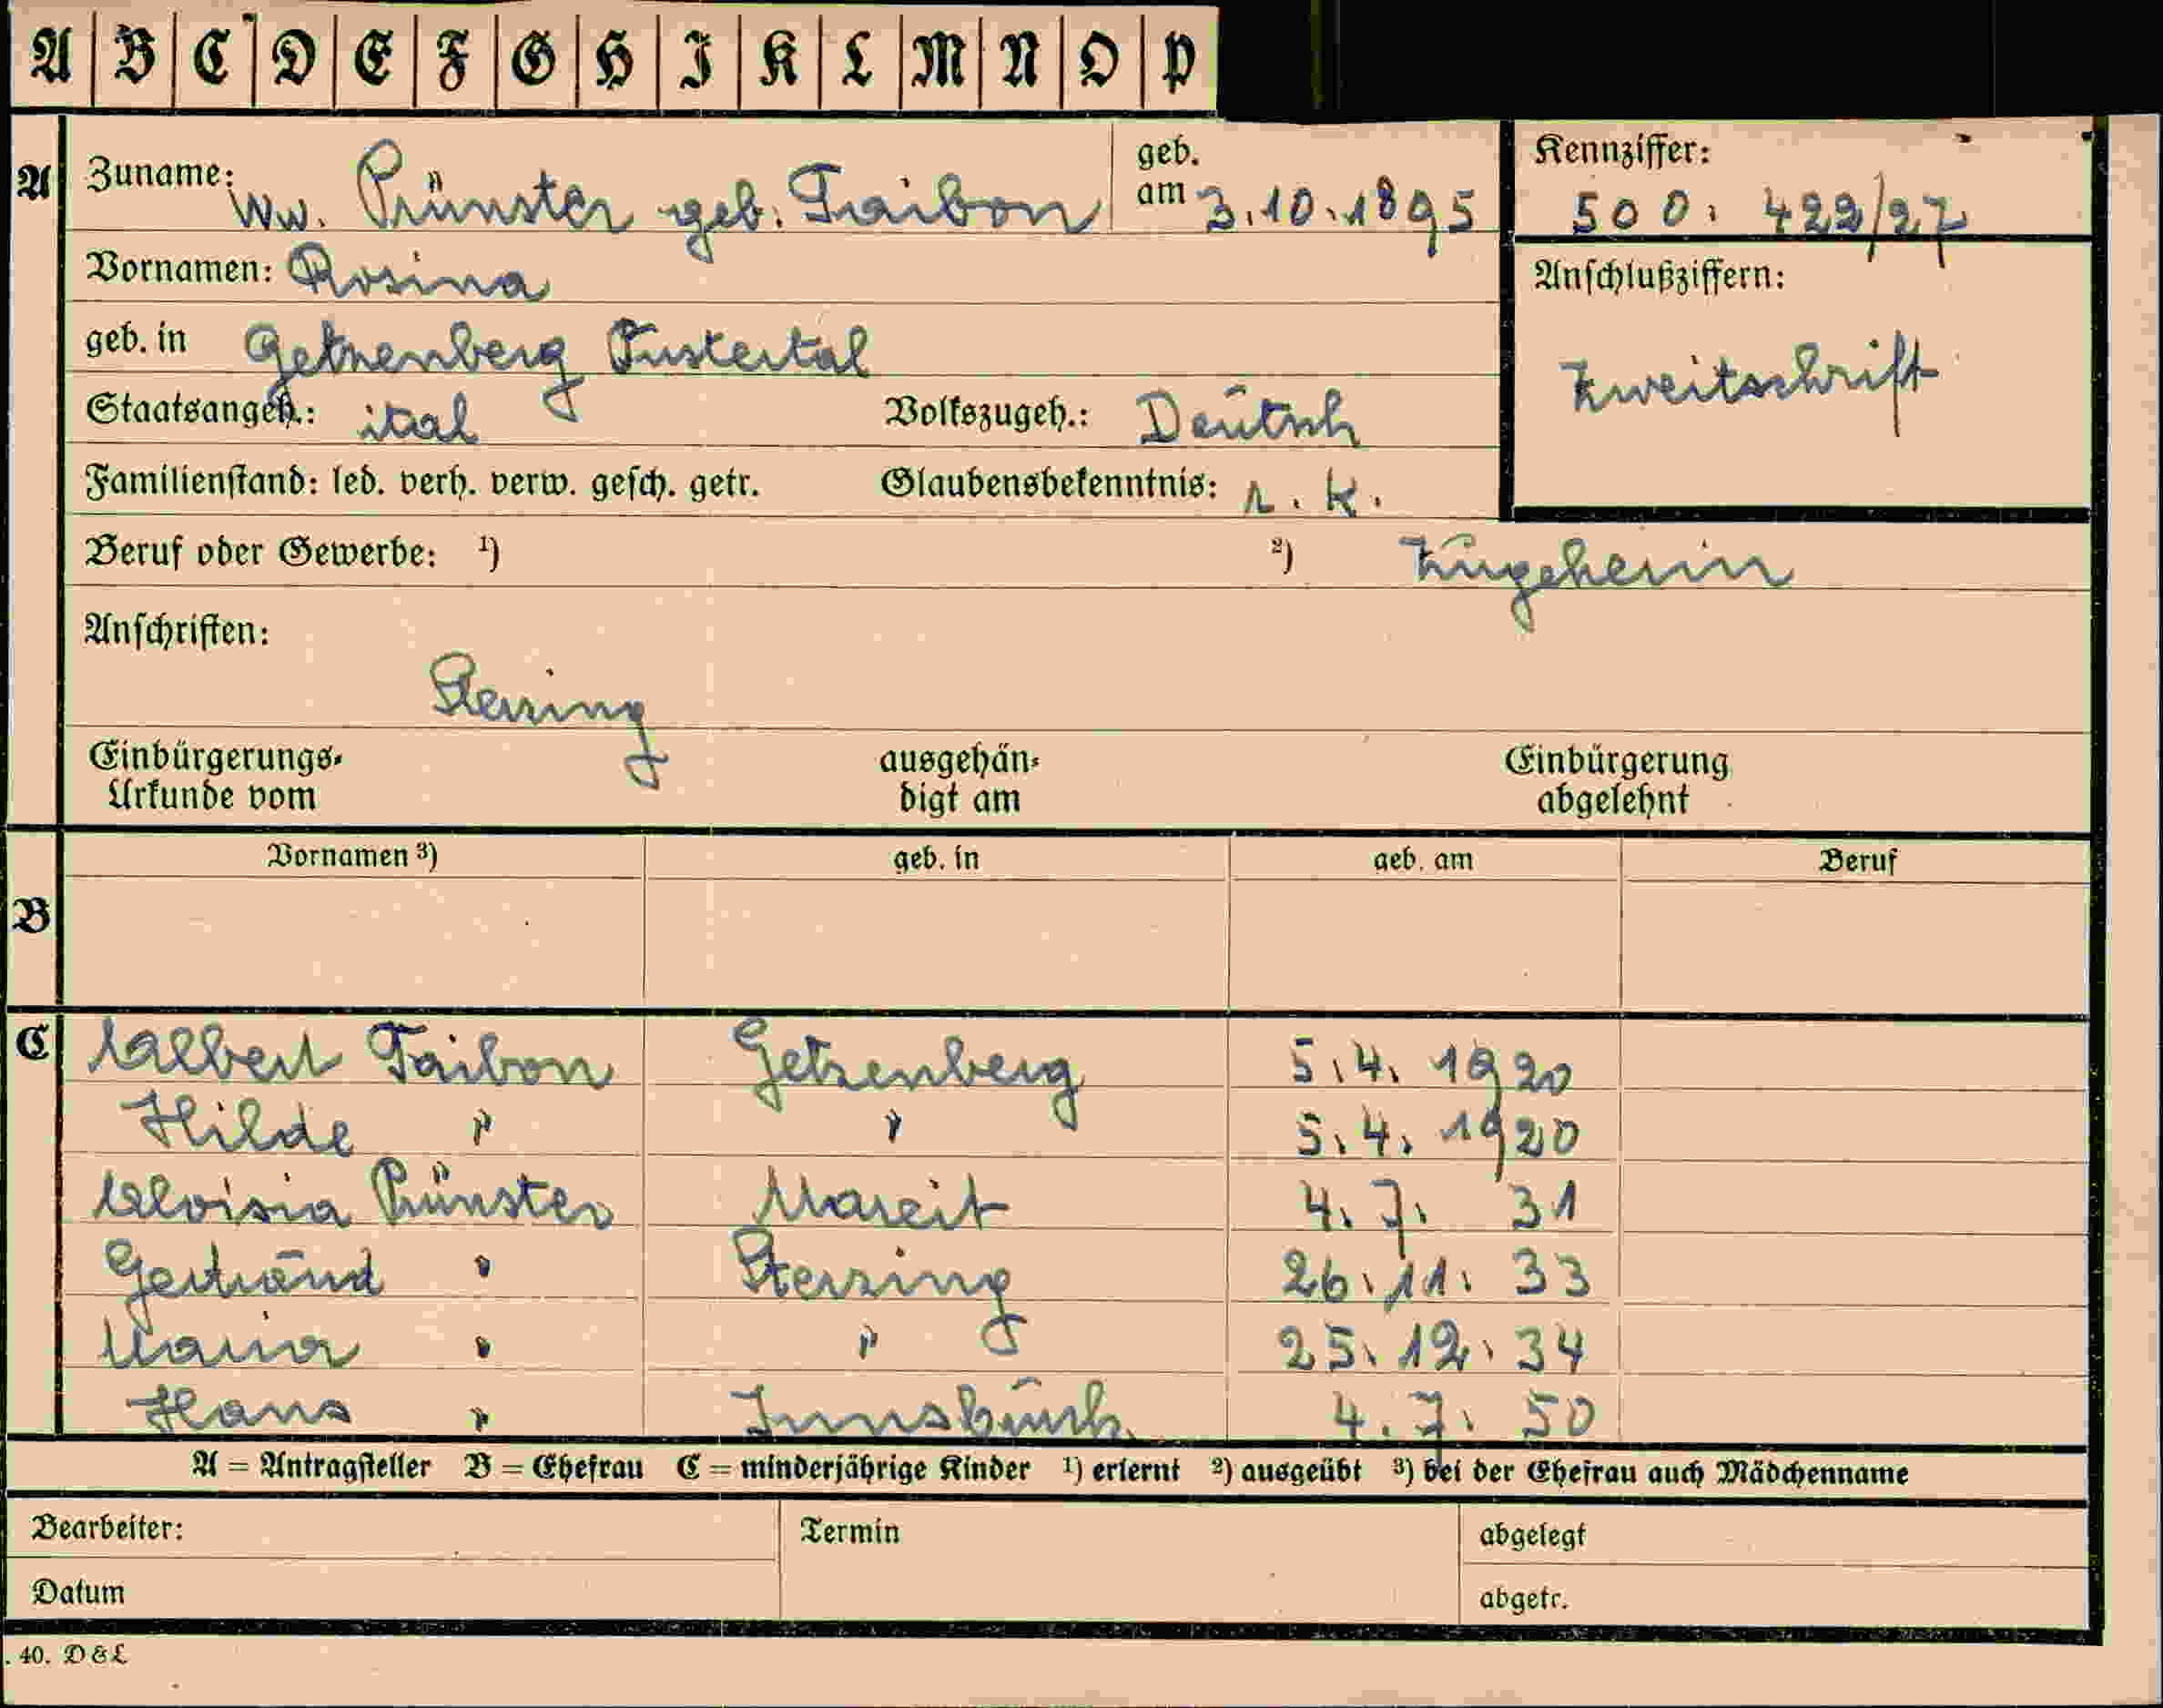 A B C D E F G H I K L M N O P
A Zuname: Ww. Prünster geb. Taibon geb. am 3.10.1895 Kennziffer: 500. 422/27
Vornamen: Rosina
Anschlußziffern:
geb. in Getzenberg Pustertal
Zweitschrift
Staatsangeh.: ital Volkszugeh.: Deutsch
Familienstand: led. verh. verw. gesch. getr. Glaubensbekenntnis: r. k.
Beruf oder Gewerbe: 1) 2) Zugeherin
Anschriften:
Sterzing
Einbürgerungs- ausgehän- Einbürgerung
Urkunde vom digt am abgelehnt
Vornamen 3) geb. in geb. am Beruf
B
C Albert Taibon Getzenberg 5.4. 1920
Hilde " " 5.4. 1920
Aloisia Prünster Mareit 4. 7. 31
Gertraud " Sterzing 26. 11. 33
Maria " " 25. 12. 34
Hans " Innsbruck 4. 7. 50
A = Antragsteller B = Ehefrau C = minderjährige Kinder 1) erlernt 2) ausgeübt 3) bei der Ehefrau auch Mädchenname
Bearbeiter: Termin abgelegt
Datum abgetr.
. 40. D & L